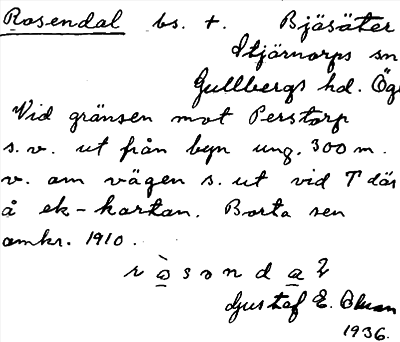 Rosendal bs. +. Bjäsäter
Stjärnorps sn
Gullbergs hd. Ög
Vid gränsen mot Perstorp
s.v. ut från byn ung. 300 m.
v. om vägen s. ut vid T där
å ek-kartan. Borta sen
omkr. 1910.
r ò s o n d a ɭ
Gustaf E. Oman
1936.